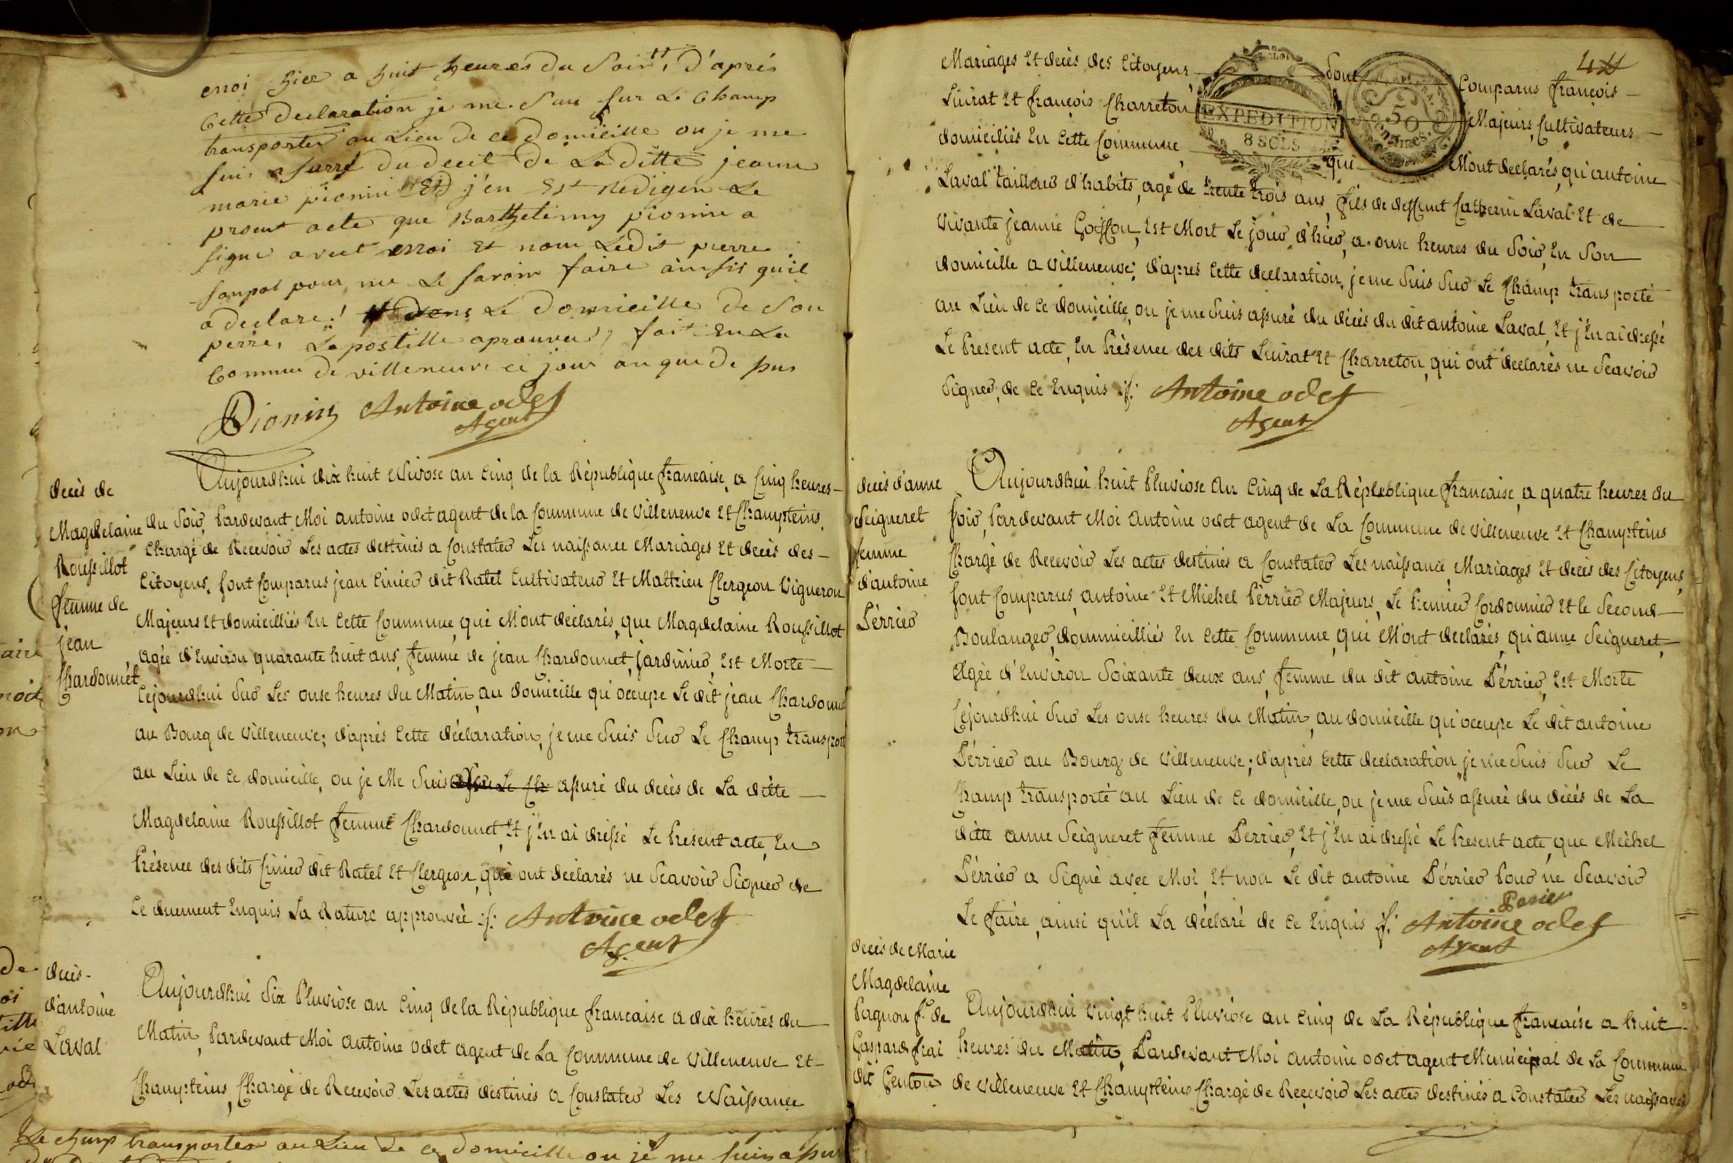 moi hier a huit heures du Soir, d'après
Cette declaration je me Suis Sur Le Champ
transporter au Lieu De ce domicille ou je me
Suis assuré du decet De La ditte jeanne
marie pionin Et j'en Est Redigen Le
presnt acte que Barthelemy pionin a
signe avect moi Et nom Ledit pierre
pour ne Le Savoir faire ainsis qu'il
a declare! Le domicille De Son
perre, La postille aprouvée, fait En La
Commune De villeneuve ce jour an que De pus
Pionin Antoine odet
Agent
decès de
Magdelaine
Roussillot
femme de
jean
Chardonnet
Aujourdhui dix huit Nivose an Cinq de la République francaise, a Cinq heures
du Soir, Pardevant Moi antoine odet agent de la Commune de Villeneuve Et Champteins,
Chargé de Recevoir Les actes destinés a Constater Les naissance Mariages Et decès des
Citoyens, Sont Comparus jean Cinier dit Ratel Cultivateur Et Mathieu Clergeon Vigneron
Majeurs Et domicilliés En Cette Commune, qui Mont declarés, que Magdelaine Roussillot
agée d'Environ quarante huit ans, femme de jean Chardonnet, jardinier Est Morte
Cejourdhui Sur Les onse heures du Matin, au domicille qui occupe Le dit jean Chardonnet
au Bourg de Villeneuve; d'après Cette déclaration, je me Suis Sur Le Champ transporté
au Lieu de ce domicille, ou je Me Suis assuré du decès de La ditte
Magdelaine Roussillot femme Chardonnet, Et j'En ai dressé Le Present acte, En
Présence des dits Cinier dit Ratel Et Clergeon, qui ont déclarés ne Scavoir Signer de
Ce duement Enquis La Rature approuvée ./. Antoine odet
Agent
decès
d'antoine
Laval
Aujourdhui Six Pluviose an Cinq de la République francaise a dix heures du
Matin, Pardevant Moi antoine odet agent de La Commune de Villeneuve Et
Champteins, Chargé de Recevoir Les actes destinés a Constater Les Naissance
Le champ transporter au Lieu De ce domicille ou je me suis assu
44
Mariages Et decès des Citoyens, Sont Comparus françois
Livrat Et françois Charreton, Majeurs, Cultivateurs
EXPEDITION
8 SOLS
50
domiciliés En Cette Commune, qui Mont declarés, qu'antoine
Laval Tailleur d'habits, agé de trente trois ans, fils de deffunt Laval Et de
Vivante jeanne Goiffon, Est Mort Le jour d'hier, a onse heures du Soir, En Son
domicille a Villeneuve; d'après Cette declaration, je me Suis Sur Le Champ transporté
au Lieu de ce domicille, ou je me Suis assuré du décès du dit antoine Laval, Et j'En ai dressé
Le Present acte, En Présence des dits Livrat Et Charreton, qui ont declarés ne Scavoir
Signer, de ce Enquis ./. Antoine odet
Agent
decès d'anne
Seigneret
femme
d'antoine
Périer
Aujourdhui huit Pluviose An Cinq de La République francaise, a quatre heures du
Soir, Pardevant Moi Antoine odet agent de La Commune de Villeneuve Et Champteins
Chargé de Recevoir Les actes destinés a Constater Les naissance, Mariages Et decès des Citoyens,
Sont Comparus, antoine Et Michel Perrier Majeurs, Le Premier Cordonnier Et le Second
Boulanger, dommicilliés En Cette Commune, qui Mont declarés, qu'anne Seigneret,
Agée d'Environ Soixante deux ans, femme du dit antoine Périer, Est Morte
Cejourdhui Sur Les onse heures du Matin, au domicille qu'occupe Le dit antoine
Périer au Bourg de Villeneuve; d'après Cette declaration, je me Suis Sur Le
Champ transporté au Lieu de ce domicille, ou je me Suis assuré du décès de La
ditte anne Seigneret femme Perrier, Et j'En ai dressé Le Present acte, que Michel
Périer a Signé avec Moi, Et non Le dit antoine Périer Pour ne Scavoir
Le faire, ainsi qu'il La déclaré de ce Enquis ./. Perier
Antoine odet
Agent
decès de Marie
Magdelaine
Pagnon fe. de
Gaspard
dit Genton
Aujourdhui Vingt huit Pluviose an Cinq de La République francaise a huit
heures du Matin, Pardevant Moi antoine odet agent Municipal de La Commune
de Villeneuve Et Champteins Chargé de Recevoir Les actes destinés a Constater Les naissance